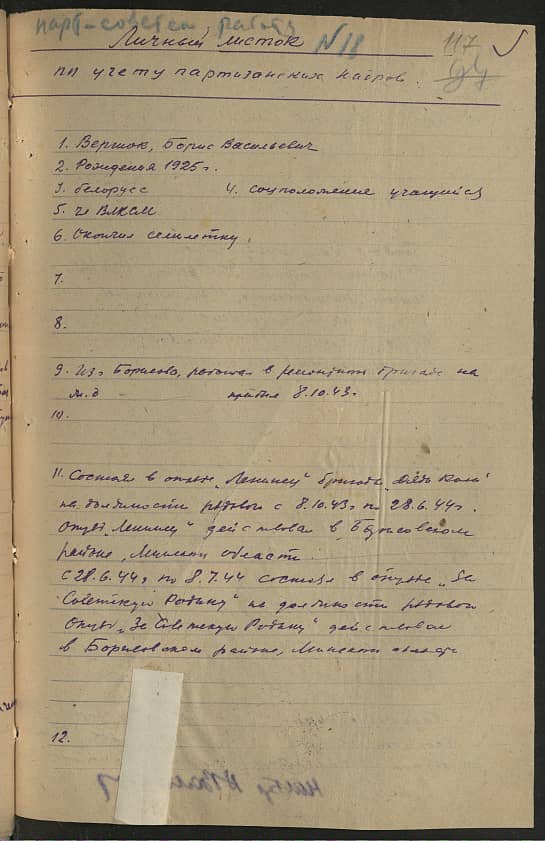 парт-советск. работа
Личный листок № 11
117
94
по учету партизанских кадров.
1. Вершок, Борис Васильевич
2. Рождения 1925 г.
3. белорусс 4. соцположение учащийся
5. чл ВЛКСМ
6. Окончил семилетку.
7.
8.
9. Из г Борисова, работал в ремонтной бригаде на
ж.д прибыл 8.10.43 г
10.
11. Состоял в отряде „Ленинец" бригады „Дяди Коли"
на должности рядовой с 8.10.43 г по 28.6.44 г.
Отряд „Ленинец" действовал в Борисовском
районе, Минской области.
С 28.6.44 г по 8.7.44 состоял в отряде „За
Советскую Родину" на должности рядовой.
Отряд „За Советскую Родину" действовал
в Борисовском районе, Минской области
12.